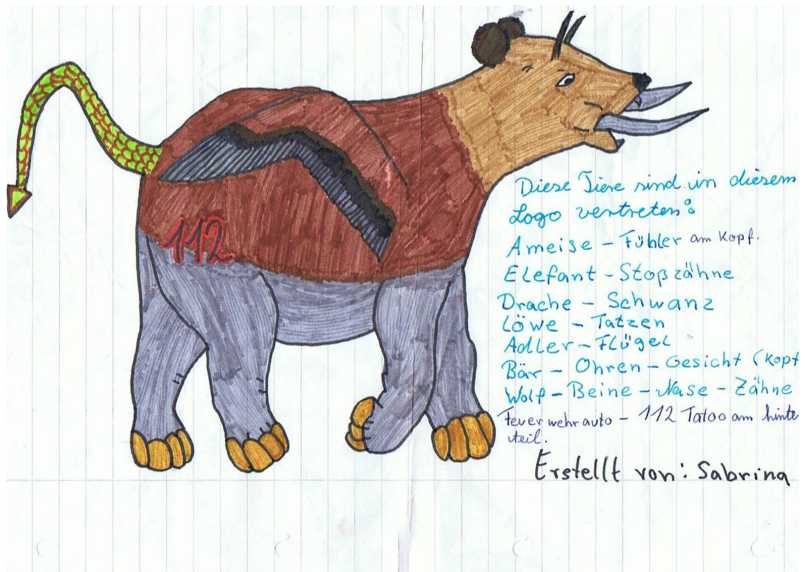 112
Diese Tiere sind in diesem
Logo vertreten:
Ameise – Fühler am Kopf.
Elefant – Stoßzähne
Drache – Schwanz
Löwe – Tatzen
Adler – Flügel
Bär – Ohren – Gesicht (Kopf
Wolf – Beine – Nase – Zähne
Feuerwehrauto – 112 Tatoo am hinte
teil.
Erstellt von: Sabrina